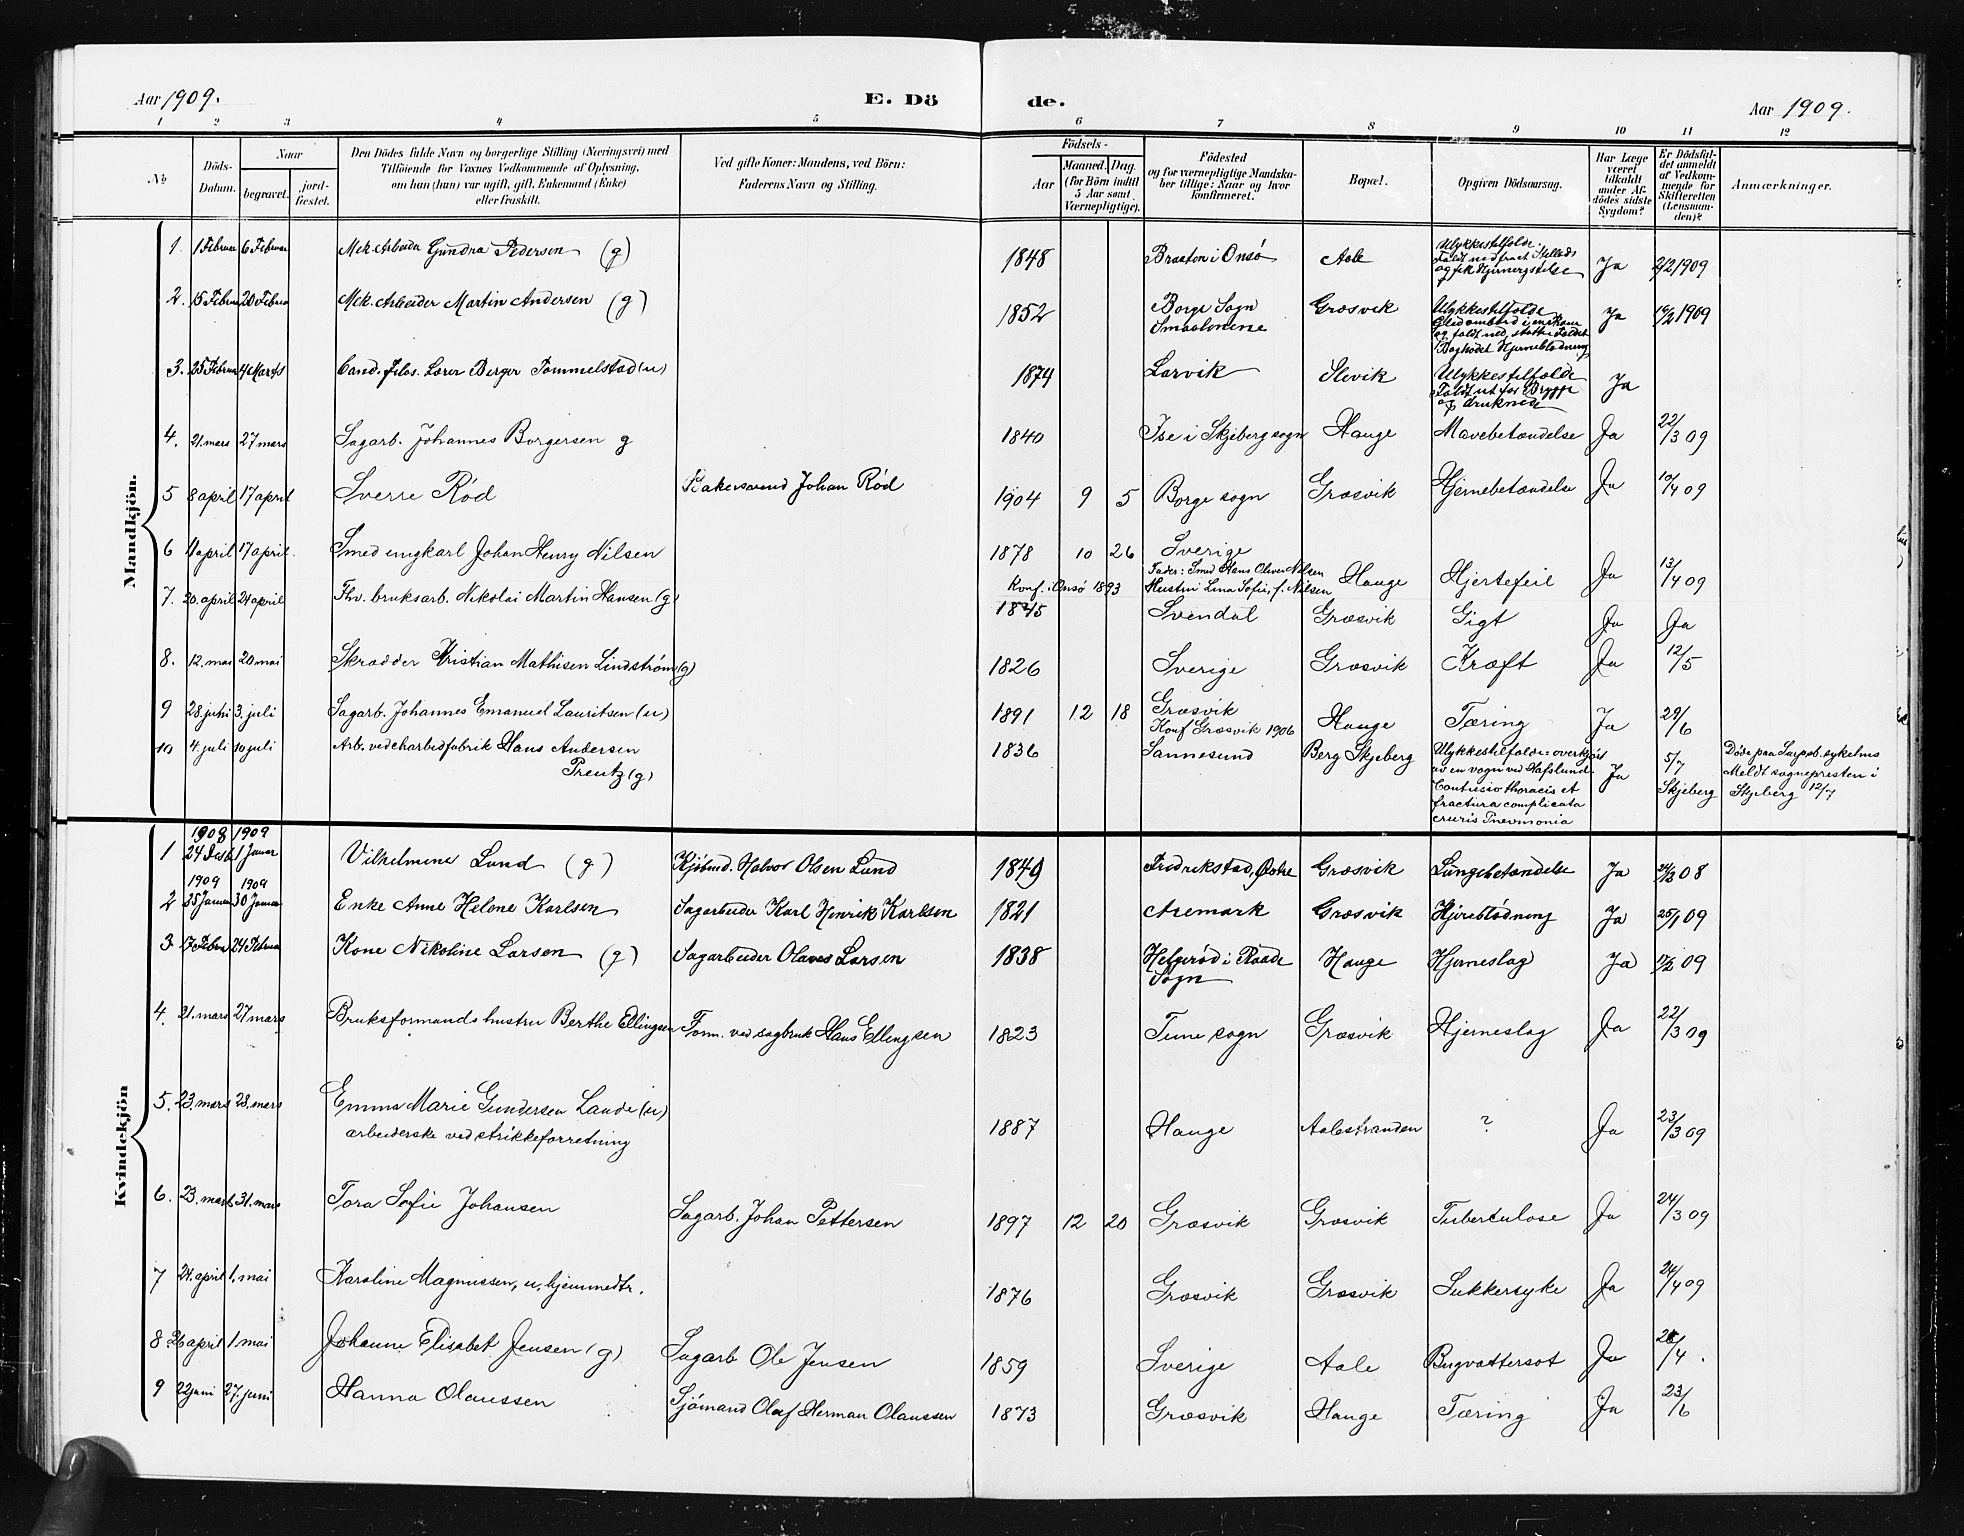 Aar 1909. E. Dö de. Aar 1909.
1 2 3 4 5 6 7 8 9 10 11 12
No
Döds-Datum.
Naar
begravet.
jord-fæstet.
Den Dödes fulde Navn og borgerlige Stilling (Næringsvei) med
Tilföiende for Voxnes Vedkommende af Oplysning,
om han (hun) var ugift, gift, Enkemand (Enke)
eller fraskilt.
Ved gifte Koner: Mandens, ved Börn:
Faderens Navn og Stilling.
Födsels-
Aar
Maaned. Dag.
(for Börn indtil
5 Aar samt
Værnepligtige).
Födested
og for værnepligtige Mandska-
ber tillige: Naar og hvor
konfirmeret.
Bopæl.
Opgiven Dödsaarsag.
Har Læge
været
tilkaldt
under Af-
dödes sidste
Sygdom?
Er Dödsfal-
det anmeldt
af Vedkom-
mende for
Skifteretten
(Lensman-
den)?
Anmærkninger.
Mandkjön.
1. 1 Februar 6 Februar Mek. Arbeider Gundra Pedersen (g) 1848 Braaten i Onsø Aale Ulykkestilfælde. Faldt ned fra et Stillads og fik Hjernerystelse Ja 2/2 1909
2. 15 Februar 20 Februar Mek. Arbeider Martin Andersen (g) 1852 Borge Sogn Smaalenene Græsvik Ulykkestilfælde og faldt ned, Baghodet Hjerneblødning Ja 16/2 1909
3. 25 Februar 4 Marts Cand. filos. Lærer Berger Tommelstad (u) 1874 Larvik Slevik Ulykkestilfælde Faldt ut for Brygge og druknede Ja
4. 21. mars 27 mars Sagarb. Johannes Borgersen g 1840 Ise i Skjeberg sogn Hauge Mavebetændelse Ja 22/3 09
5 8 april 17 april Sverre Rød Bakersvend Johan Rød 1904 9 5 Borge sogn Græsvik Hjernebetændelse Ja 10/4 09
6 11 april 17 april. Smed ungkarl Johan Henry Nilsen 1878 10 26 Sverige
Fader: Smed Hans Oliver Nilsen
Konf. i Onsø 1893 Hustru Lina Sofie, f. Nilsen Hauge Hjertefeil Ja 13/4 09
7. 20. april 24 april Fhv. bruksarb. Nikolai Martin Hansen (g) 1845 Svendal Græsvik Gigt Ja Ja
8. 12. mai 20 mai Skrædder Kristian Mathisen Lindstrøm (g) 1826 Sverige Græsvik Kræft Ja 12/5
9 28. juni 3. juli Sagarb. Johannes Emanuel Lauritsen (u) 1891 12 18 Græsvik
Konf Græsvik 1906 Hauge Tæring Ja 29/6
10 4. juli 10 juli Arb. ved Hans Andersen
Preutz (g) 1836 Sannesund Berg Skjeberg Ulykkestilfælde: overkjørt
av en vogn ved Hafslund.
Contusio thoracis et
fractura complicata
cruris Pnevmonia Ja 5/7 Skjeberg Døde paa Sarpsb. sykehus
Meldt sognepresten i
Skjeberg 12/7
Kvindekjön
1908 1909
1 24 Desb. 1 Januar Vilhelmine Lund (g) Kjøbmd. Halvor Olsen Lund 1849 Fredrikstad, Østre Græsvik Lungebetændelse Ja 24/12 08
1909 1909
2 25 Januar 30 Januar Enke Anne Helene Karlsen Sagarbeider Karl Henrik Karlsen 1821 Aremark Græsvik Hjerneblødning Ja 25/1 09
3. 17 Febru 24 Februar Kone Nikoline Larsen (g) Sagarbeider Olaves Larsen 1838 Helgerød i Raade Sogn Hauge Hjerneslag Ja 17/2 09
4. 21. mars 27 mars Bruksformands hustru Berthe Ellingsen Form. ved sagbruk Hans Ellingsen 1823 Tune sogn Græsvik Hjerneslag Ja 22/3 09
5. 23. mars 28. mars Emma Marie Gundersen Lande (u)
arbeiderske ved strikkeforretning 1887 Hauge Aalestranden ? Ja 23/3 09
6. 23. mars 31. mars Tora Sofie Johansen Sagarb. Johan Pettersen 1897 12 20 Græsvik Græsvik Tuberculose Ja 24/3 09
7 24. april 1. mai Karoline Magnussen, u. hjemmedtr. 1876 Græsvik Græsvik Sukkersyke Ja 24/4 09
8. 26 april 1. mai Johanne Elisabet Jensen (g) Sagarb Ole Jensen 1859 Sverige Aale Bugvattersot Ja 28/4.
9 22 juni 27. juni Hanna Olaussen Sjømand Olaf Herman Olaussen 1873 Græsvik Hauge Tæring Ja 23/6